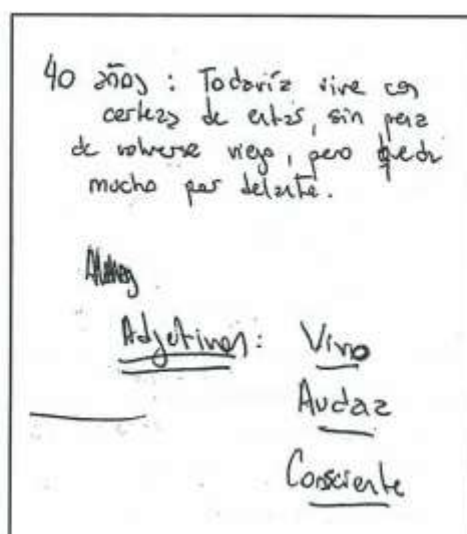 40 años : Todavía vive con
certeza de estar, sin pena
de volverse viejo, pero queda
mucho por delante.
Adjetivos: Vivo
Audaz
Consciente